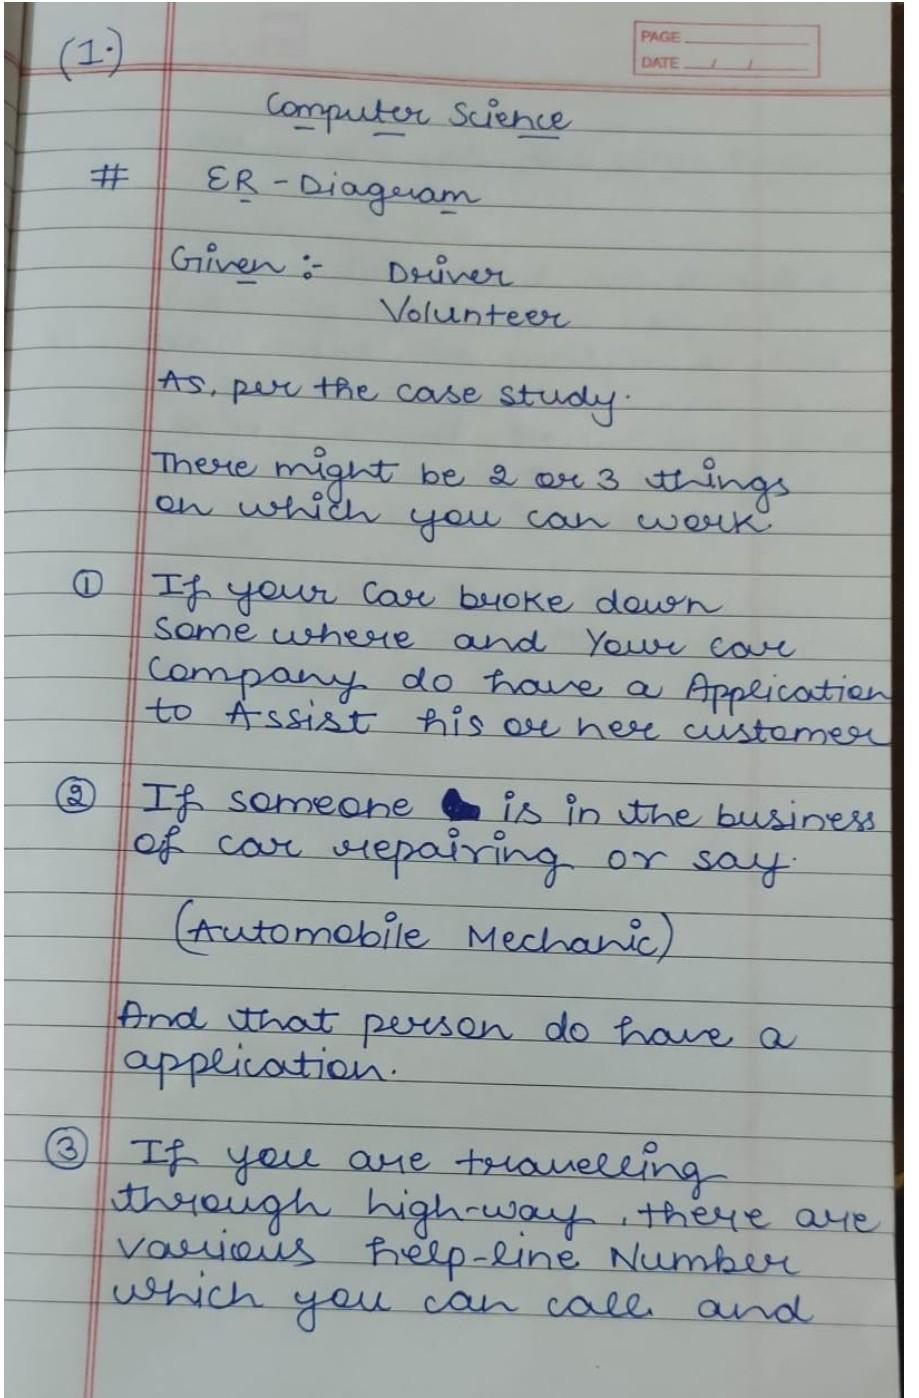 (1.)
PAGE
DATE / /
Computer Science
# ER - Diagram
Given :- Driver
Volunteer
As, per the case study.
There might be 2 or 3 things
on which you can work.
① If your Car broke down
some where and Your car
Company do have a Application
to Assist his or her customer
② If someone is in the business
of car repairing or say.
(Automobile Mechanic)
And that person do have a
application.
③ If you are travelling
through high-way, there are
various help-line Number
which you can call and